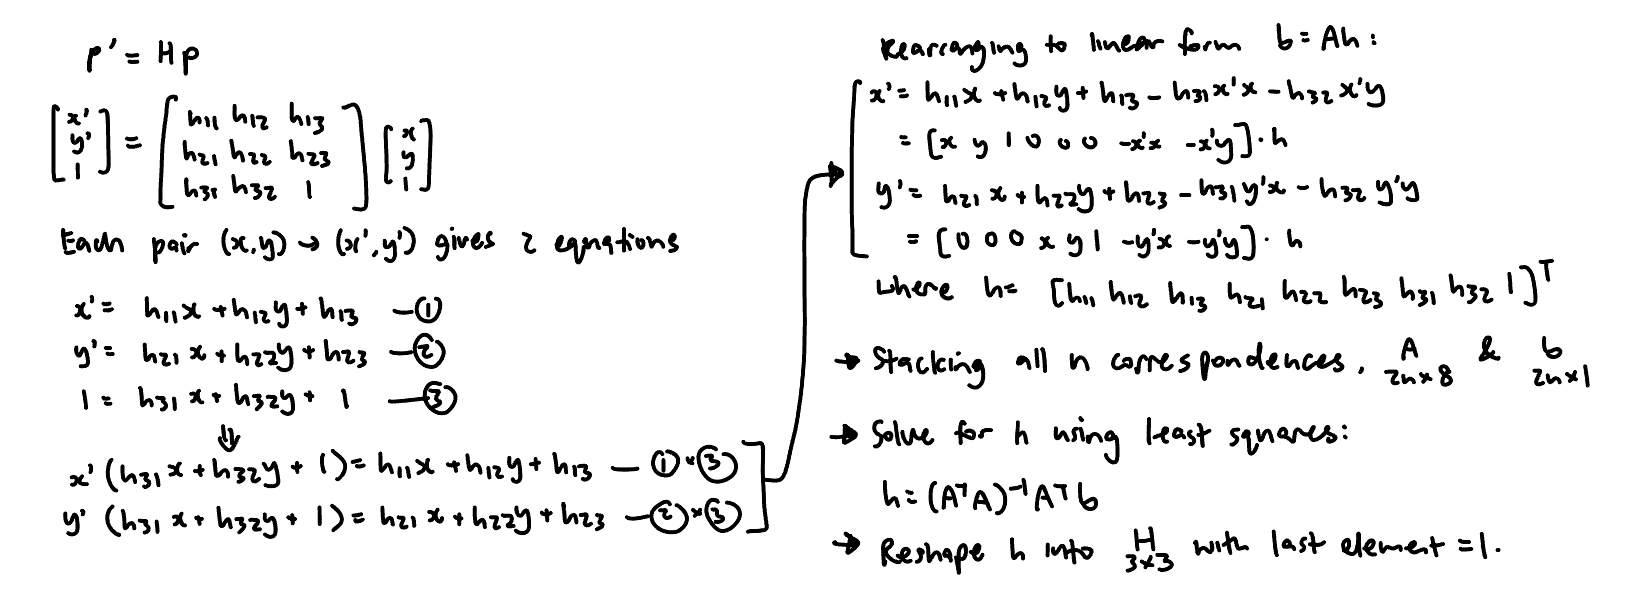 p' = Hp
[x' y' 1] = [h11 h12 h13
h21 h22 h23
h31 h32 1] [x y 1]
Each pair (x,y) → (x',y') gives 2 equations
x' = h11x + h12y + h13 — ①
y' = h21x + h22y + h23 — ②
1 = h31x + h32y + 1 — ③
⇓
x'(h31x + h32y + 1) = h11x + h12y + h13 — ①×③
y'(h31x + h32y + 1) = h21x + h22y + h23 — ②×③
Rearranging to linear form b = Ah:
x' = h11x + h12y + h13 - h31x'x - h32x'y
= [x y 1 0 0 0 -x'x -x'y]·h
y' = h21x + h22y + h23 - h31y'x - h32y'y
= [0 0 0 x y 1 -y'x -y'y]·h
where h = [h11 h12 h13 h21 h22 h23 h31 h32 1]^T
→ Stacking all n correspondences, A 2n×8 & b 2n×1
→ Solve for h using least squares:
h = (A^T A)^-1 A^T b
→ Reshape h into H 3×3 with last element = 1.